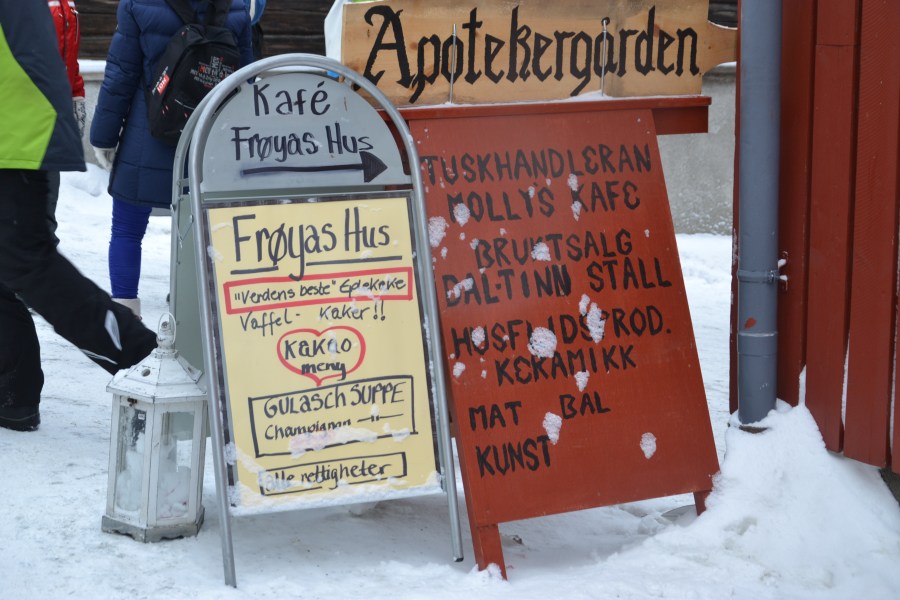 Apotekergården
Kafé
Frøyas Hus
Frøyas Hus
"Verdens beste" Eplekake
Vaffel - Kaker!!
KAKAO
meny
GULASCH SUPPE
Champignon — " —
rettigheter
TUSKHANDLERAN
MOLLYS KAFE
BRUKTSALG
DAL-TINN STALL
HUSFLIDSPROD.
KERAMIKK
MAT BAL
KUNST